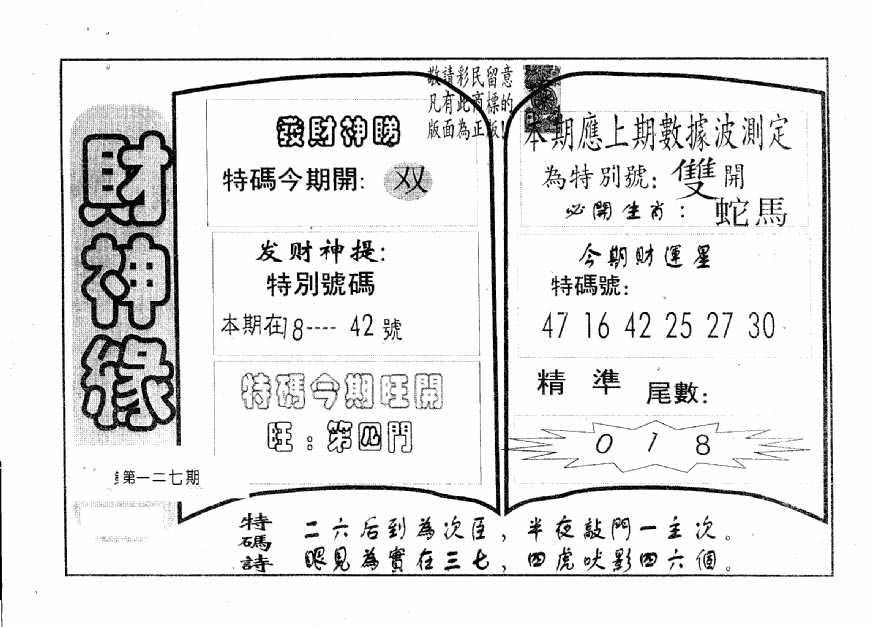 敬請彩民留意
凡有此商標的
版面為正版!
財神緣
第一二七期
發財神睇
特碼今期開: 双
发财神提:
特別號碼
本期在18---- 42號
特碼今期旺開
旺:第四門
本期應上期數據波測定
為特別號: 雙開
必開生肖: 蛇馬
今期财運星
特碼號:
47 16 42 25 27 30
精準 尾數:
0 1 8
特碼詩
二六后到為次臣,半夜敲門一主次。
眼見為實在三七,四虎吠影四六個。